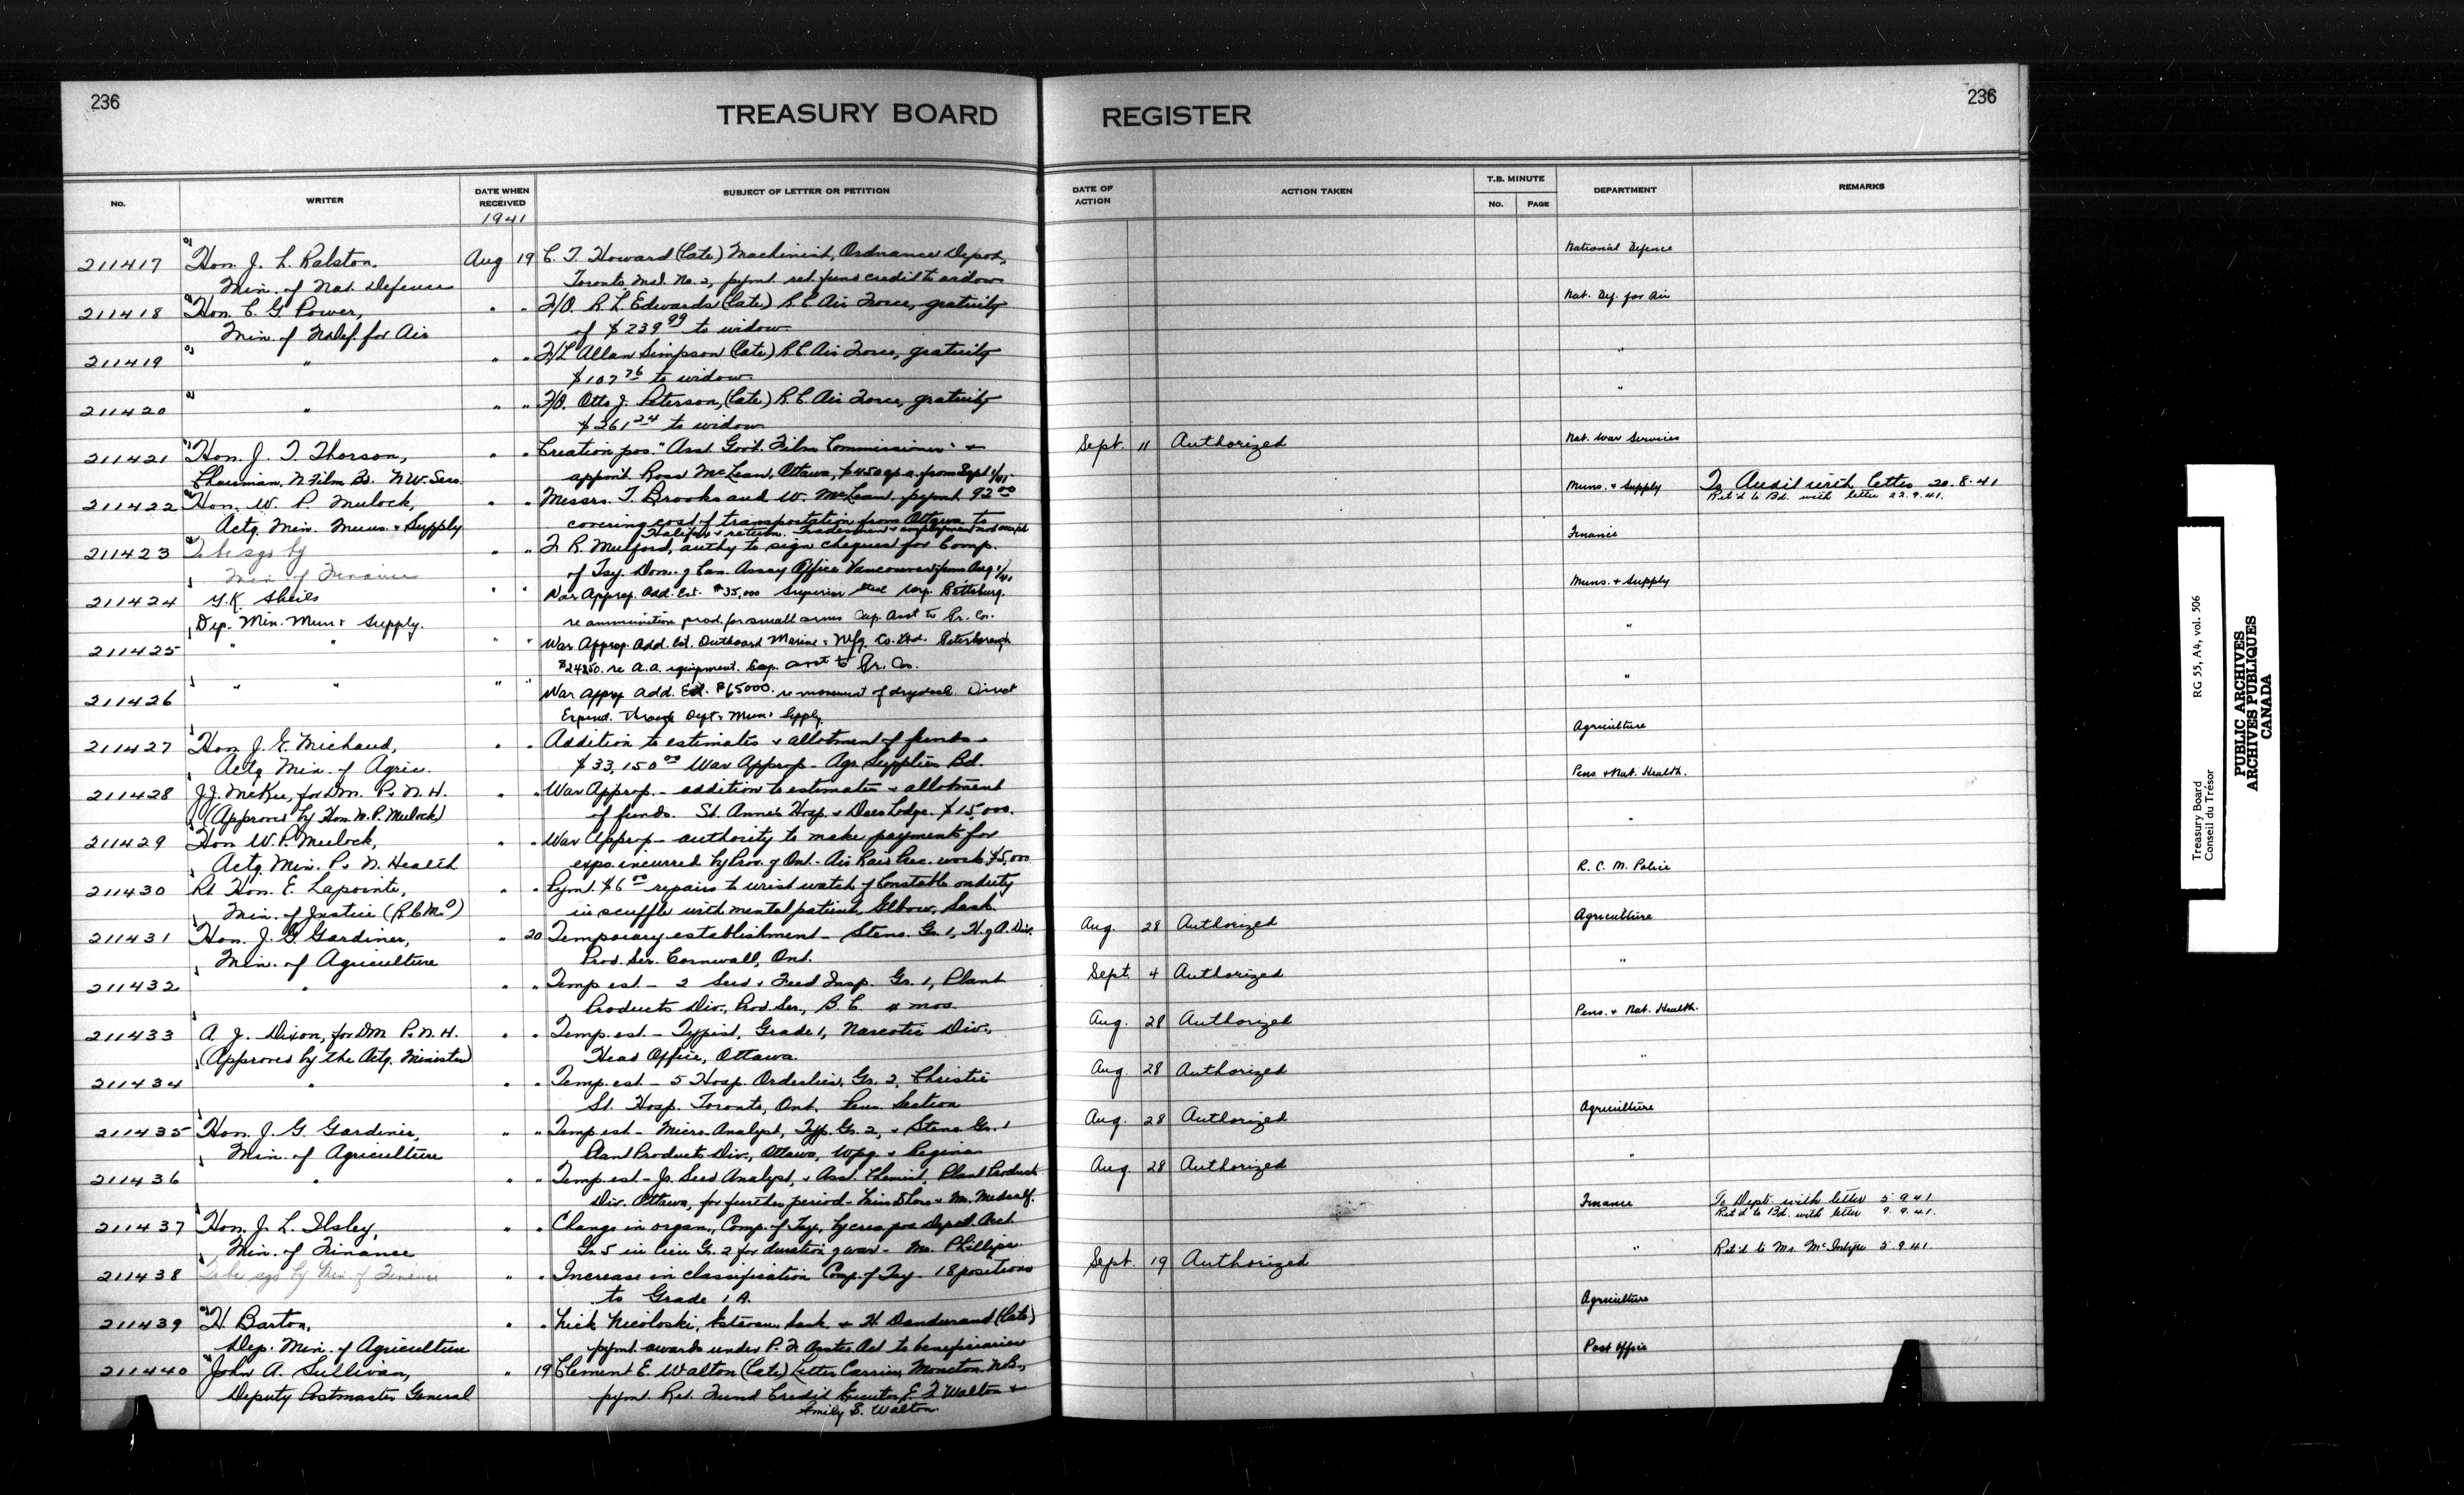 236
TREASURY BOARD REGISTER
236
No.
WRITER
DATE WHEN RECEIVED
SUBJECT OF LETTER OR PETITION
DATE OF ACTION
ACTION TAKEN
T.B. MINUTE
No.
PAGE
DEPARTMENT
REMARKS
1941
211417 Hon. J. L. Ralston, Aug 19 C. T. Howard (late) Machinist, Ordnance Depot, National Defence
Min. of Nat. Defence Toronto, Mil. No. 2, paymt. ret. fund credit to widow
211418 Hon. C. G. Power, " " F/O. R. L. Edwards (late) R C Air Force, gratuity Nat. Def. for Air
Min. of N Def. for Air of $239.99 to widow
211419 " " " F/L Allan Simpson (late) R C Air Force, gratuity "
$107.76 to widow.
211420 " " " F/O. Otto J. Peterson, (late) R. C. Air Force, gratuity "
$261.24 to widow
211421 Hon. J. T. Thorson, " " Creation pos. "Asst. Govt. Film Commissioner" + Sept. 11 Authorized Nat. War Services
Chairman, N Film Bd. N W. Serv. appmt. Ross McLean, Ottawa, $4500 p.a. from Sept 1/41
211422 Hon. W. P. Mulock, " " Messrs. T. Brooks and W. McLean, paymt. 92.00 Muns. + Supply To Audit with letter 20.8.41
Ret'd to Bd. with letter 22.9.41.
Actg. Min. Muns. + Supply covering cost of transportation from Ottawa to
Halifax + return.
211423 To be sgd by " " F. R. Mulford, authy to sign cheques for Comp. Finance
Min. of Finance of Tsy. Dom. of Can. Assay Office Vancouver from Aug 1/41
211424 G.K. Sheils " " War Approp. Add. Est. $35,000 Superior Steel Corp. Pittsburg. Muns. + Supply
Dep. Min. Mun + Supply. re ammunition prod. for small arms Cap. Asst to Pr. Co.
211425 " " " " War Approp Add. Est. Outboard Marine + Mfg. Co. Ltd. Peterborough "
$24850. re A.A. equipment. Cap. asst to Pr. Co.
211426 " " " " War Approp Add. Est. $65000. re movement of drydock. Direct "
Expend. through Dept. Mun + Supply.
211427 Hon J. E. Michaud, " " Addition to estimates + allotment of funds - Agriculture
Actg. Min. of Agric. $33,150.00 War Approp - Agr. Supplies Bd.
211428 J.J. McKee, for D.M. P. + N. H. " " War Approp. - addition to estimates + allotment Pens. + Nat. Health.
(Approved by Hon. W. P. Mulock) of funds. St. Anne's Hosp. + Deer Lodge. $15,000.
211429 Hon W. P. Mulock, " " War Approp - authority to make payments for "
Actg. Min. P. + N. Health exps. incurred by Prov. of Ont. - Air Raid Prec. work $5,000
211430 Rt Hon. E. Lapointe, " " Paymt. $6.00 repairs to wrist watch of Constable on duty R. C. M. Police
Min. of Justice (R C M P) in scuffle with mental patient, Elbow, Sask.
211431 Hon. J. G. Gardiner, " 20 Temporary establishment - Steno. Gr. 1, H. of A. Div. Aug. 28 Authorized Agriculture
Min. of Agriculture Prod. Ser. Cornwall, Ont.
211432 " " " Temp est - 2 Seed + Feed Insp. Gr. 1, Plant Sept. 4 Authorized "
Products Div., Prod Ser., B. C. 4 mos.
211433 A. J. Dixon, for DM P. + N. H. " " Temp. est - Typist, Grade 1, Narcotic Div., Aug. 28 Authorized Pens. + Nat. Health.
(Approved by the Actg. Minister) Head Office, Ottawa.
211434 " " " Temp. est - 5 Hosp. Orderlies, Gr. 2, Christie Aug. 28 Authorized "
St. Hosp. Toronto, Ont. Pens. Section
211435 Hon. J. G. Gardiner, " " Temp est - Micro. Analyst, Typ. Gr. 2, + Steno Gr. 1 Aug. 28 Authorized Agriculture
Min. of Agriculture Plant Products Div., Ottawa, Wpg. + Regina
211436 " " " Temp. est - Jr. Seed Analyst, + Asst. Chemist, Plant Products Aug. 28 Authorized "
Div. Ottawa, for further period - Miss + Mr. Medcalf.
211437 Hon. J. L. Ilsley, " " Change in organ., Comp. of Tsy, by crea. pos. Dept. Acct. Finance To Dept. with letter 5.9.41
Ret'd to Bd. with letter 9.9.41.
Min. of Finance Gr. 5 in lieu Gr. 2 for duration of war - Mr. Phillips.
211438 To be sgd by Min of Finance " " Increase in classification Comp. of Tsy - 18 positions Sept. 19 Authorized " Ret'd to Mr. McIntyre 5.9.41.
to Grade 1 A.
211439 H Barton, " " Nick Nicoloski, Estevan, Sask + H. Dandurand (late) Agriculture
Dep. Min. of Agriculture paymt. awards under P. F. Asstce Act to beneficiaries
211440 John A. Sullivan, " 19 Clement E. Walton (late) Letter Carrier, Moncton. N.B., Post Office
Deputy Postmaster General paymt. Ret. Fund Credit Executor, E. F. Walton +
Emily S. Walton.
Treasury Board RG 55, A4, vol. 506
Conseil du Trésor
PUBLIC ARCHIVES
ARCHIVES PUBLIQUES
CANADA